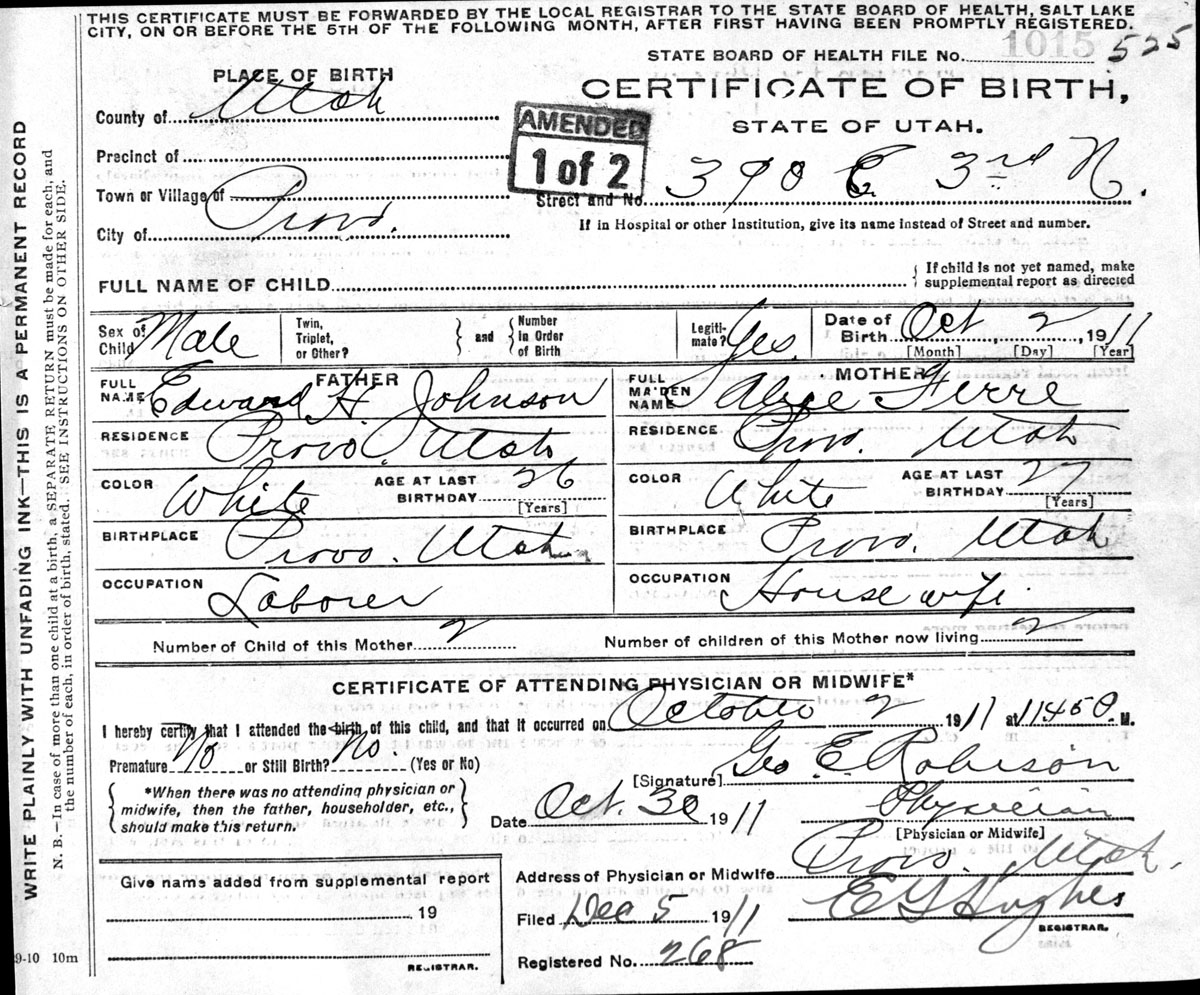 THIS CERTIFICATE MUST BE FORWARDED BY THE LOCAL REGISTRAR TO THE STATE BOARD OF HEALTH, SALT LAKE
CITY, ON OR BEFORE THE 5TH OF THE FOLLOWING MONTH, AFTER FIRST HAVING BEEN PROMPTLY REGISTERED.
1015 525
STATE BOARD OF HEALTH FILE No.
PLACE OF BIRTH
CERTIFICATE OF BIRTH,
STATE OF UTAH.
County of Utah
AMENDED
1 of 2
Precinct of
Town or Village of
Street and No. 390 E. 3rd N.
City of Provo.
If in Hospital or other Institution, give its name instead of Street and number.
FULL NAME OF CHILD
If child is not yet named, make
supplemental report as directed
Sex of Child Male
Twin, Triplet, or Other?
and
Number in Order of Birth
Legiti-mate? Yes.
Date of Birth Oct 2, 1911
[Month] [Day] [Year]
FATHER
FULL NAME Edward H. Johnson
RESIDENCE Provo. Utah
COLOR White
AGE AT LAST BIRTHDAY 26
[Years]
BIRTHPLACE Provo. Utah
OCCUPATION Laborer
MOTHER
FULL MAIDEN NAME Alice Ferre
RESIDENCE Provo. Utah
COLOR White
AGE AT LAST BIRTHDAY 27
[Years]
BIRTHPLACE Provo. Utah
OCCUPATION House wife.
Number of Child of this Mother 2
Number of children of this Mother now living 2
CERTIFICATE OF ATTENDING PHYSICIAN OR MIDWIFE*
I hereby certify that I attended the birth of this child, and that it occurred on October 2 1911 at M.
Premature No or Still Birth? No. (Yes or No)
*When there was no attending physician or
midwife, then the father, householder, etc.,
should make this return.
[Signature] Geo. E. Robison
Date Oct. 30 1911
Physician
[Physician or Midwife]
Give name added from supplemental report
19
REGISTRAR.
Address of Physician or Midwife Provo. Utah.
Filed Dec 5 1911
E G Hughes
REGISTRAR.
Registered No. 268
9-10 10m
WRITE PLAINLY WITH UNFADING INK—THIS IS A PERMANENT RECORD
N. B.—In case of more than one child at a birth, a SEPARATE RETURN must be made for each, and
the number of each, in order of birth, stated. SEE INSTRUCTIONS ON OTHER SIDE.